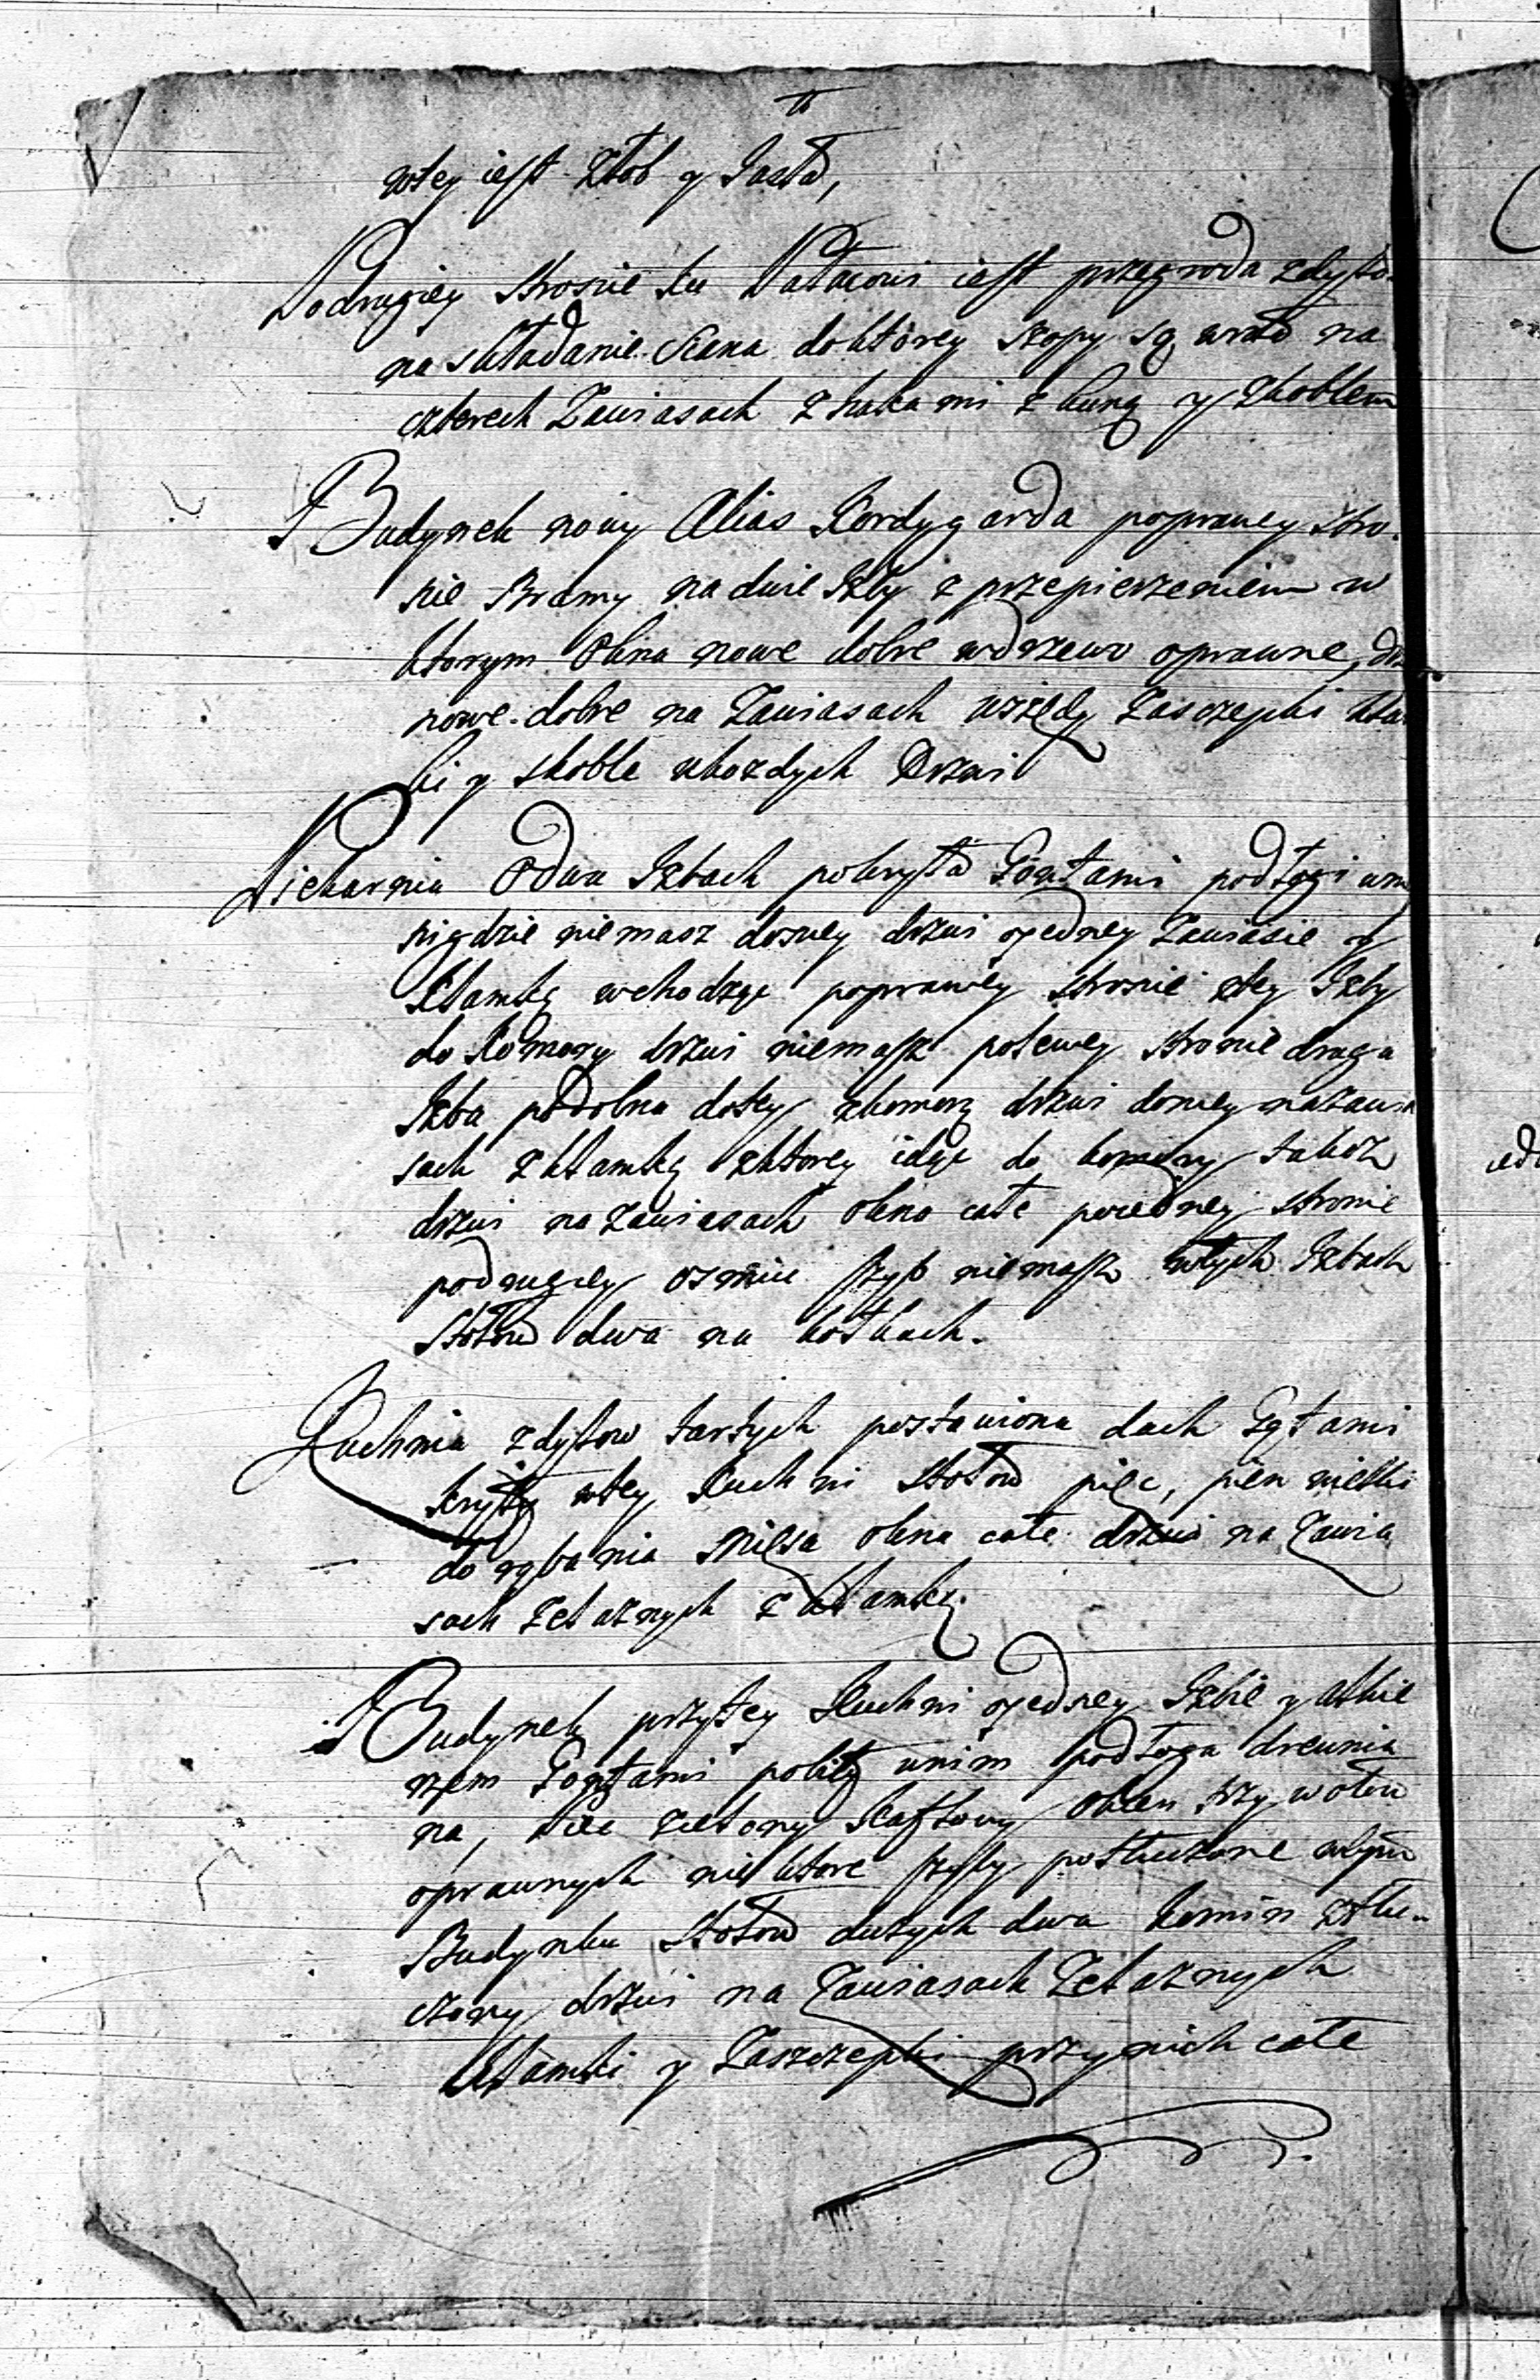 wtey iest Złob y Jasła,
Podrugiey stronie ku Pałacowi iest przegroda zdylo-
na składanie Siana doktorey szopy są wrota na
czterech Zawiasach z hakami z kuną y skoblem
Budynek nowy Alias Kordygarda poprawey stro-
nie Bramy na dwie Izby z przepierzeniem w
ktorym Okna nowe dobre wdrzewo oprawne,
nowe dobre na Zawiasach wszędy Zasczepki
ki y skoble ukozdych Drzwi
Piekarnia O dwu Izbach pokryta Gontami podłogi
nigdzie niemasz dosney drzwi ojedney Zawiasie y
Klamką wchodząc poprawey stronie ztey Izby
do Komory drzwi niemasz polewey stronie druga
Izba podobna dotey zkomorą drzwi doniey nazawia
sach z klamką zktorey idąc do komory takoz
drzwi na zawiasach okna całe poiedney stronie
podrugiey osmiu szyb niemasz wtych Izbach
Stołow dwa na kołkach.
Kuchnia zdylow tartych postawiona dach Gątami
kryty wtey Kuchni Stołow pięc, pien wielki
do rąbania mięsa okna całe drzwi na Zawia
sach zelaznych z klamką.
Budynek przytey Kuchni ojedney Izbie y alkie
rzem Gontami pobity wnim podłoga drewnia
na, Piec zielony Kaflowy Okien trzy wołow
oprawnych niektore szyby potłuczone wtym
Budynku Stołow duzych dwa komin wtłu-
czony drzwi na Zawiasach Zelaznych
Klamki y Zaszczepki przynich całe